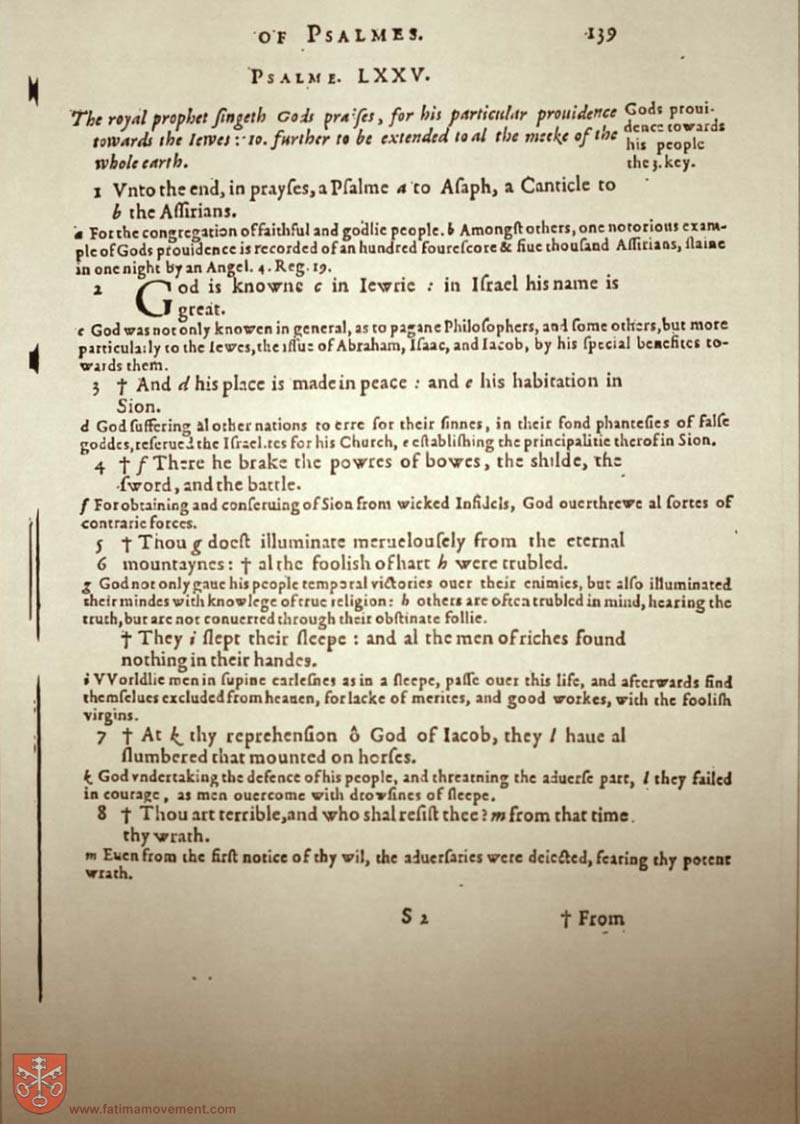 OF PSALMES.
139
PSALME. LXXV.
The royal prophet ſingeth Gods praiſes, for his particular prouidence
towards the Iewes: 10. further to be extended to al the meeke of the
whole earth.
Gods proui-
dence towards
his people
the 3. key.
1 Vnto the end, in prayſes, a Pſalme a to Aſaph, a Canticle to
b the Aſſirians.
a For the congregation of faithful and godlie people. b Amongſt others, one notorious exam-
ple of Gods prouidence is recorded of an hundred foureſcore & fiue thouſand Aſſirians, ſlaine
in one night by an Angel. 4. Reg. 19.
2 God is knowne c in Iewrie : in Iſrael his name is
great.
c God was not only knowen in general, as to pagane Philoſophers, and ſome others, but more
particularly to the Iewes, the iſſue of Abraham, Iſaac, and Iacob, by his ſpecial benefites to-
wards them.
3 † And d his place is made in peace : and e his habitation in
Sion.
d God ſuffering al other nations to erre for their ſinnes, in their fond phanteſies of falſe
goddes, reſerued the Iſraelites for his Church, e eſtabliſhing the principalitie therof in Sion.
4 † f There he brake the powres of bowes, the shilde, the
ſword, and the battle.
f For obtaining and conſeruing of Sion from wicked Infidels, God ouerthrewe al ſortes of
contrarie forces.
5 † Thou g doeſt illuminate meruelouſely from the eternal
6 mountaynes: † al the fooliſh of hart h were trubled.
g God not only gaue his people temporal victories ouer their enimies, but alſo illuminated
their mindes with knowlege of true religion: h others are often trubled in mind, hearing the
truth, but are not conuerted through their obſtinate follie.
† They i ſlept their ſleepe : and al the men of riches found
nothing in their handes.
i VVorldlie men in ſupine carleſnes as in a ſleepe, paſſe ouer this life, and afterwards find
themſelues excluded from heauen, for lacke of merites, and good workes, with the fooliſh
virgins.
7 † At k thy reprehenſion ô God of Iacob, they l haue al
ſlumbered that mounted on horſes.
k God vndertaking the defence of his people, and threatning the aduerſe part, l they failed
in courage, as men ouercome with drowſines of ſleepe.
8 † Thou art terrible, and who shal reſiſt thee? m from that time
thy wrath.
m Euen from the firſt notice of thy wil, the aduerſaries were deiected, fearing thy potent
wrath.
S 2
† From
www.fatimamovement.com